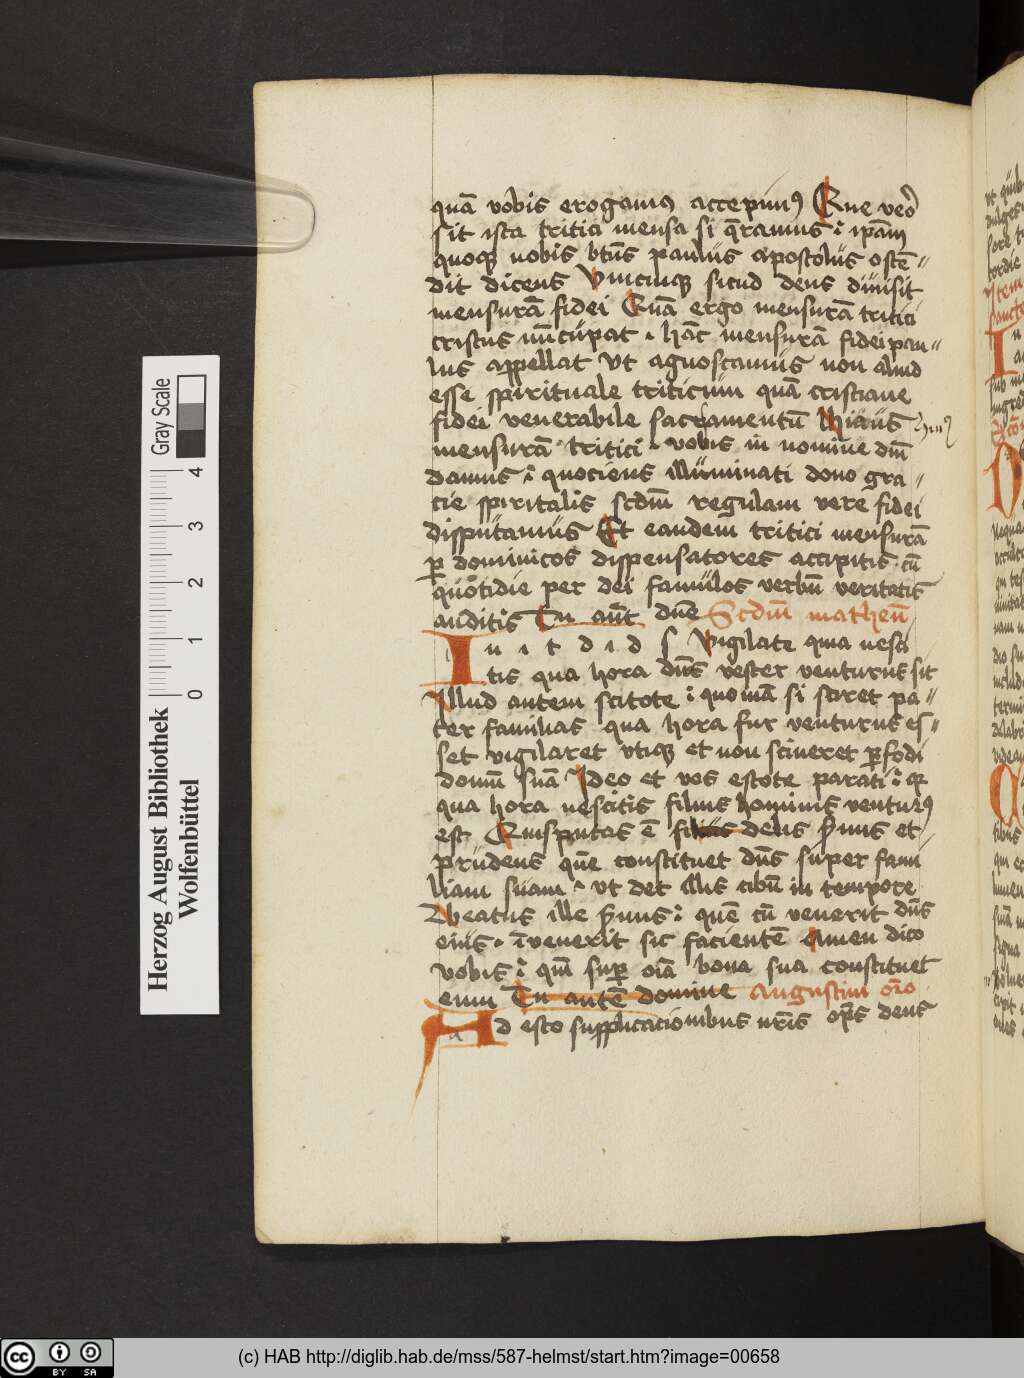 quā vobis erogamus accepimus Que vero
sit ista tritici mensa si q̄ramus ip̄am
quoque nobis bt̄us paulus apostolus ostē-
dit dicens Unicuique sicud deus diuisit
mensurā fidei Quā ergo mensurā tritici
cristus nūcupat hāc mensurā fidei pau-
lus appellat ut agnoscamus non aliud
esse spirituale triticum quā cristiane
fidei venerabile sacramentū Huius
mensurā tritici vobis in nomine dn̄i
damus quociens illuminati dono gra-
cie spiritalis scdm̄ regulam vere fidei
disputamus Et eandem tritici mensurā
per dominicos dispensatores accipitis cū
quotidie per dei famulos verbū veritatis
auditis Tu aūt dn̄e Scdm̄ matheū
In i t d i d s Vigilate quia nesci
tis qua hora dn̄s vester venturus sit
Illud autem scitote quoniā si sciret pa-
ter familias qua hora fur venturus es-
set vigilaret utique et non sineret perfodi
domū suā Ideo et vos estote parati quia
qua hora nescitis filius hominis venturus
est Quis putas ē fidelis s̄uus et
prudens quē constituet dn̄s super fami
liam suam ut det illis cibū in tempore
Beatus ille s̄uus quē cū venerit dn̄s
eius īvenerit sic facientē Amen dico
vobis qm̄ super oīa bona sua constituet
eum Tu autē domine Augustini
Ad esto supplicacionibus nr̄is deus
Herzog August Bibliothek
Wolfenbüttel
0 1 2 3 4
Gray Scale
cc BY SA
(c) HAB http://diglib.hab.de/mss/587-helmst/start.htm?image=00658